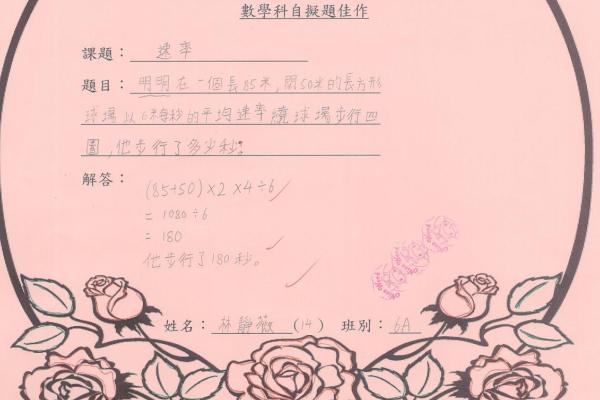 數學科自擬題佳作
課題：速率
題目：明明在一個長85米，闊50米的長方形
球場以6米每秒的平均速率繞球場步行四
圈，他步行了多少秒？
解答：(85+50)×2×4÷6
= 1080÷6
= 180
他步行了180秒。
姓名：林靜薇 (14) 班別：6A